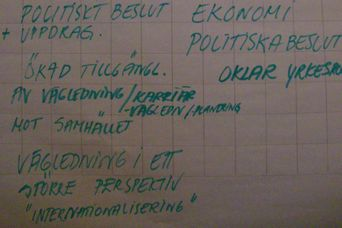 POLITISKT BESLUT
+ UPPDRAG.
ÖKAD TILLGÄNGL.
AV VÄGLEDNING/KARRIÄR
VÄGLEDN/PLANERING
MOT SAMHÄLLET
VÄGLEDNING I ETT
STÖRRE PERSPEKTIV
"INTERNATIONALISERING"
EKONOMI
POLITISKA BESLUT
OKLAR